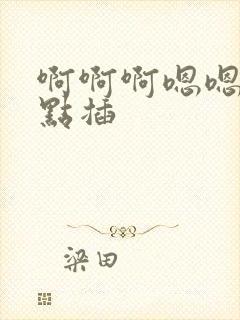 啊啊啊嗯嗯
點插
梁田